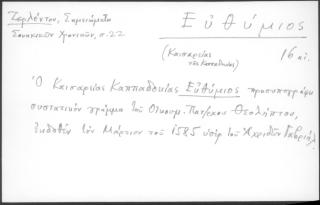 Ζερλέντου, Σημειώματα
Σιναϊτικῶν Χρονικῶν, σ. 22
Εὐθύμιος
(Καισαρείας
τῆς Καππαδοκίας)
16 αἰ.
Ὁ Καισαρείας Καππαδοκίας Εὐθύμιος προσυπογράφει
συστατικὸν γράμμα τοῦ Οἰκουμ. Πατ/ρχου Θεολήπτου,
ἐκδοθὲν τὸν Μάρτιον τοῦ 1585 ὑπὲρ τοῦ Ἀχριδῶν Γαβριήλ.